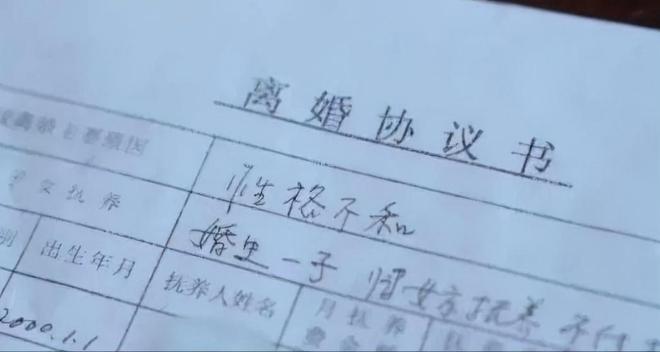 离婚协议书
离婚主要原因
性格不和
子女抚养
婚生一子 归女方抚养 不付
别
出生年月
抚养人姓名
月抚养
2000.1.1
费金额